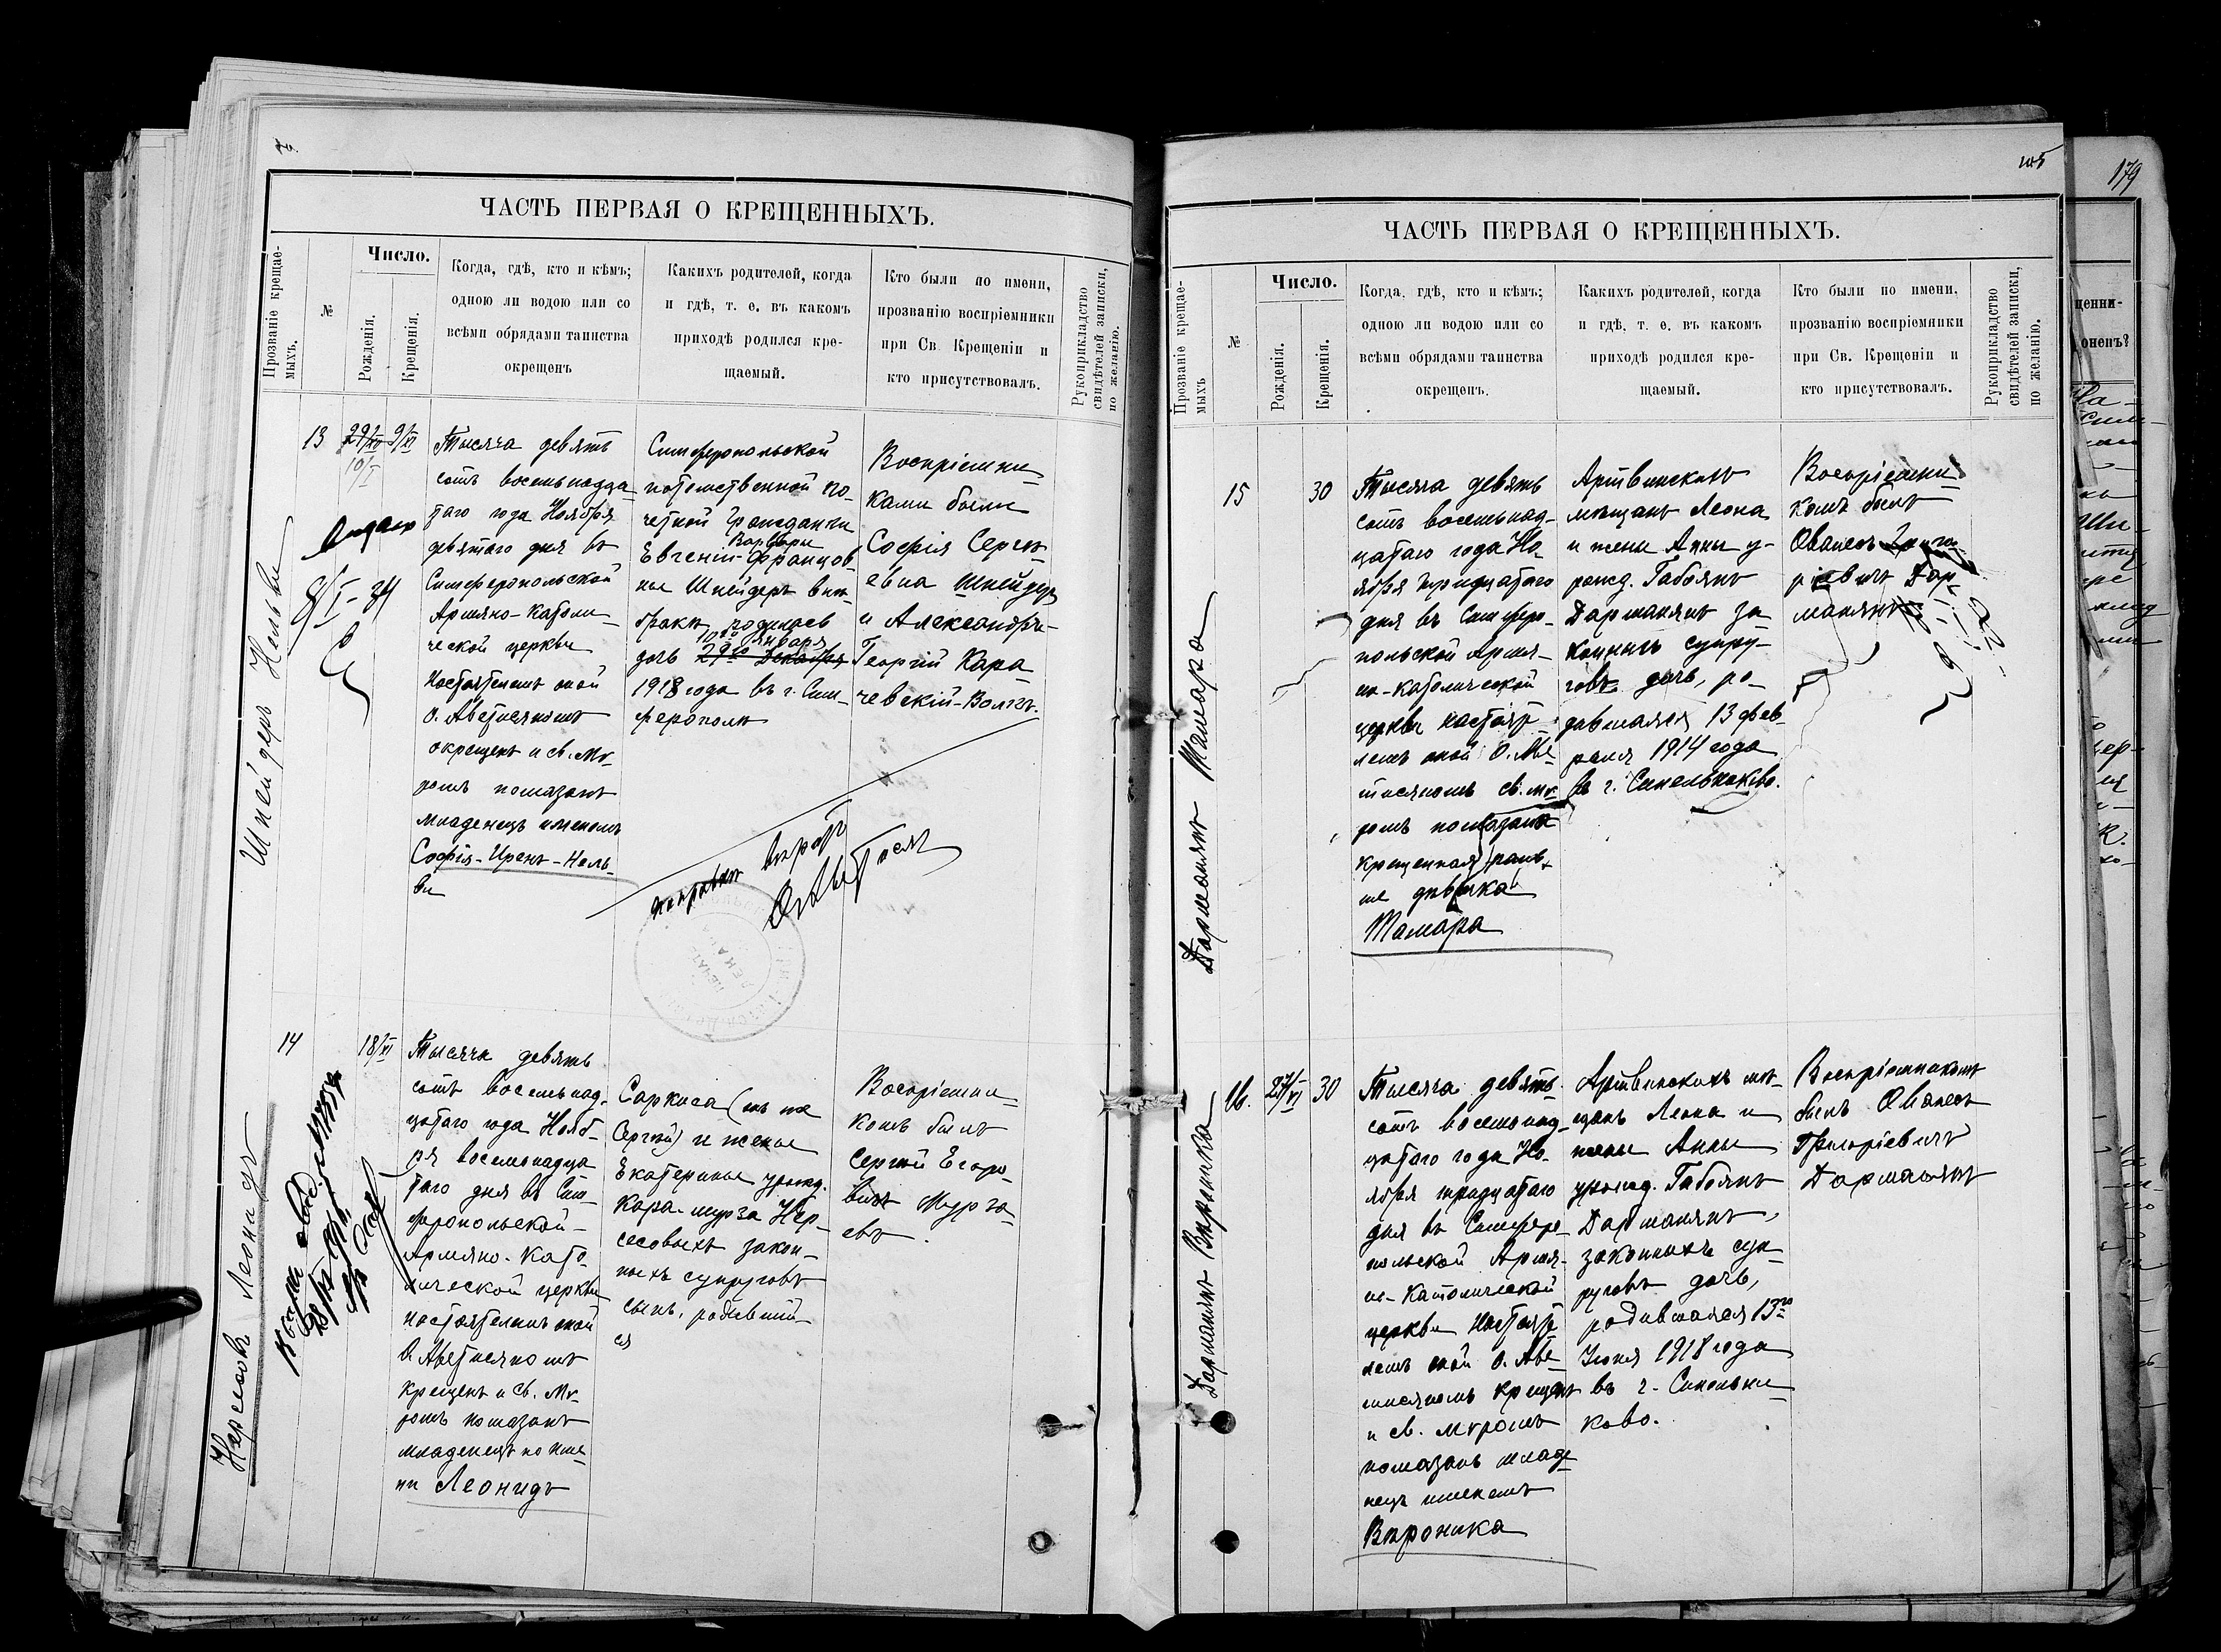 ЧАСТЬ ПЕРВАЯ О КРЕЩЕННЫХЪ.
Прозваніе крещае-
мыхъ.
№
Число.
Рожденія.
Крещенія.
Когда, гдѣ, кто и кѣмъ;
одною ли водою или со
всѣми обрядами таинства
окрещенъ
Какихъ родителей, когда
и гдѣ, т. е. въ какомъ
приходѣ родился кре-
щаемый.
Кто были по имени,
прозванію воспріемники
при Св. Крещеніи и
кто присутствовалъ.
Рукоприкладство
свидѣтелей записки,
по желанію.
Шнейдеръ Нельви
13
29/XII
10/I
9/XI
8/I-34
Тысяча девять
сотъ восемьнадца
таго года Ноября
девятаго дня въ
Симферопольской
Армяно-католи-
ческой церкви
Настоятелемъ оной
О. Аветисяномъ
окрещенъ и св. Мѵ-
ромъ помазанъ
младенецъ именемъ
Софія-Иренъ-Нель-
ви
Симферопольской
потомственной по-
четной Гражданки
Варвары
Евгеніи-Францов-
ны Шнейдеръ внѣ-
бракѣ родилась
10го Января
дочь 29го Декабря
1918 года въ г. Сим-
ферополѣ
Воспріемни-
ками были
Софія Серге-
евна Шнейдеръ
и Александръ-
Георгій Кара-
чевскій-Волкъ.
исправилъ вѣрой
О. Аветисян
Нерсесовъ Леонидъ
14
18/XI
Тысяча девять
сотъ восемьнад-
цатаго года Нояб-
ря восемьнадца
таго дня въ Сим-
феропольской-
Армяно-Като-
лической церкви
настоятелемъ оной
О. Аветисяномъ
крещенъ и св. Мѵ-
ромъ помазанъ
младенецъ по име-
ни Леонидъ
Саркиса (онъ же
Сергѣй) и жены
Екатерины урожд.
Кара-мурза Нер-
сесовыхъ закон-
ныхъ супруговъ
сынъ, родивший-
ся
Воспріемни-
комъ былъ
Сергѣй Егоро-
вичъ Мурза-
евъ.
105
ЧАСТЬ ПЕРВАЯ О КРЕЩЕННЫХЪ.
Прозваніе крещае-
мыхъ
№
Число.
Рожденія.
Крещенія.
Когда, гдѣ, кто и кѣмъ;
одною ли водою или со
всѣми обрядами таинства
окрещенъ.
Какихъ родителей, когда
и гдѣ, т. е. въ какомъ
приходѣ родился кре-
щаемый.
Кто были по имени,
прозванію воспріемники
при Св. Крещеніи и
кто присутствовалъ.
Рукоприкладство
свидѣтелей записки,
по желанію.
Дарманянъ Тамара
15
30
Тысяча девять
сотъ восемьнад-
цатаго года Но-
ября тридцатаго
дня въ Симферо-
польской Армя-
но-католической
церкви настояте-
лемъ оной О. Аве-
тисяномъ св. мѵ-
ромъ помазана
крещенная рань-
ше дѣвочка
Тамара
Артвинскихъ
мѣщанъ Леона
и жены Анны у-
рожд. Габоянъ
Дарманянъ за-
конныхъ супру-
говъ дочь, ро-
дившаяся 13 фев-
раля 1914 года
въ г. Синельниково.
Воспріемни-
комъ былъ
Ованесъ Григо-
ріевичъ Дар-
манянъ
Дарманянъ Вѣроника
16.
27/VI
30
Тысяча девять-
сотъ восемьнад-
цатаго года Но-
ября тридцатаго
дня въ Симферо-
польской Армя-
но-Католической
церкви Настояте-
лемъ оной О. Аве-
тисяномъ крещенъ
и св. мѵромъ
помазанъ младе-
нецъ именемъ
Вѣроника
Артвинскихъ мѣ-
щанъ Леона и
жены Анны
урожд. Габоянъ
Дарманянъ,
законныхъ суп-
руговъ дочь,
родившаяся 13го
Іюня 1918 года
въ г. Синельни-
ково.
Воспріемникомъ
былъ Ованесъ
Григоріевичъ
Дарманянъ
179